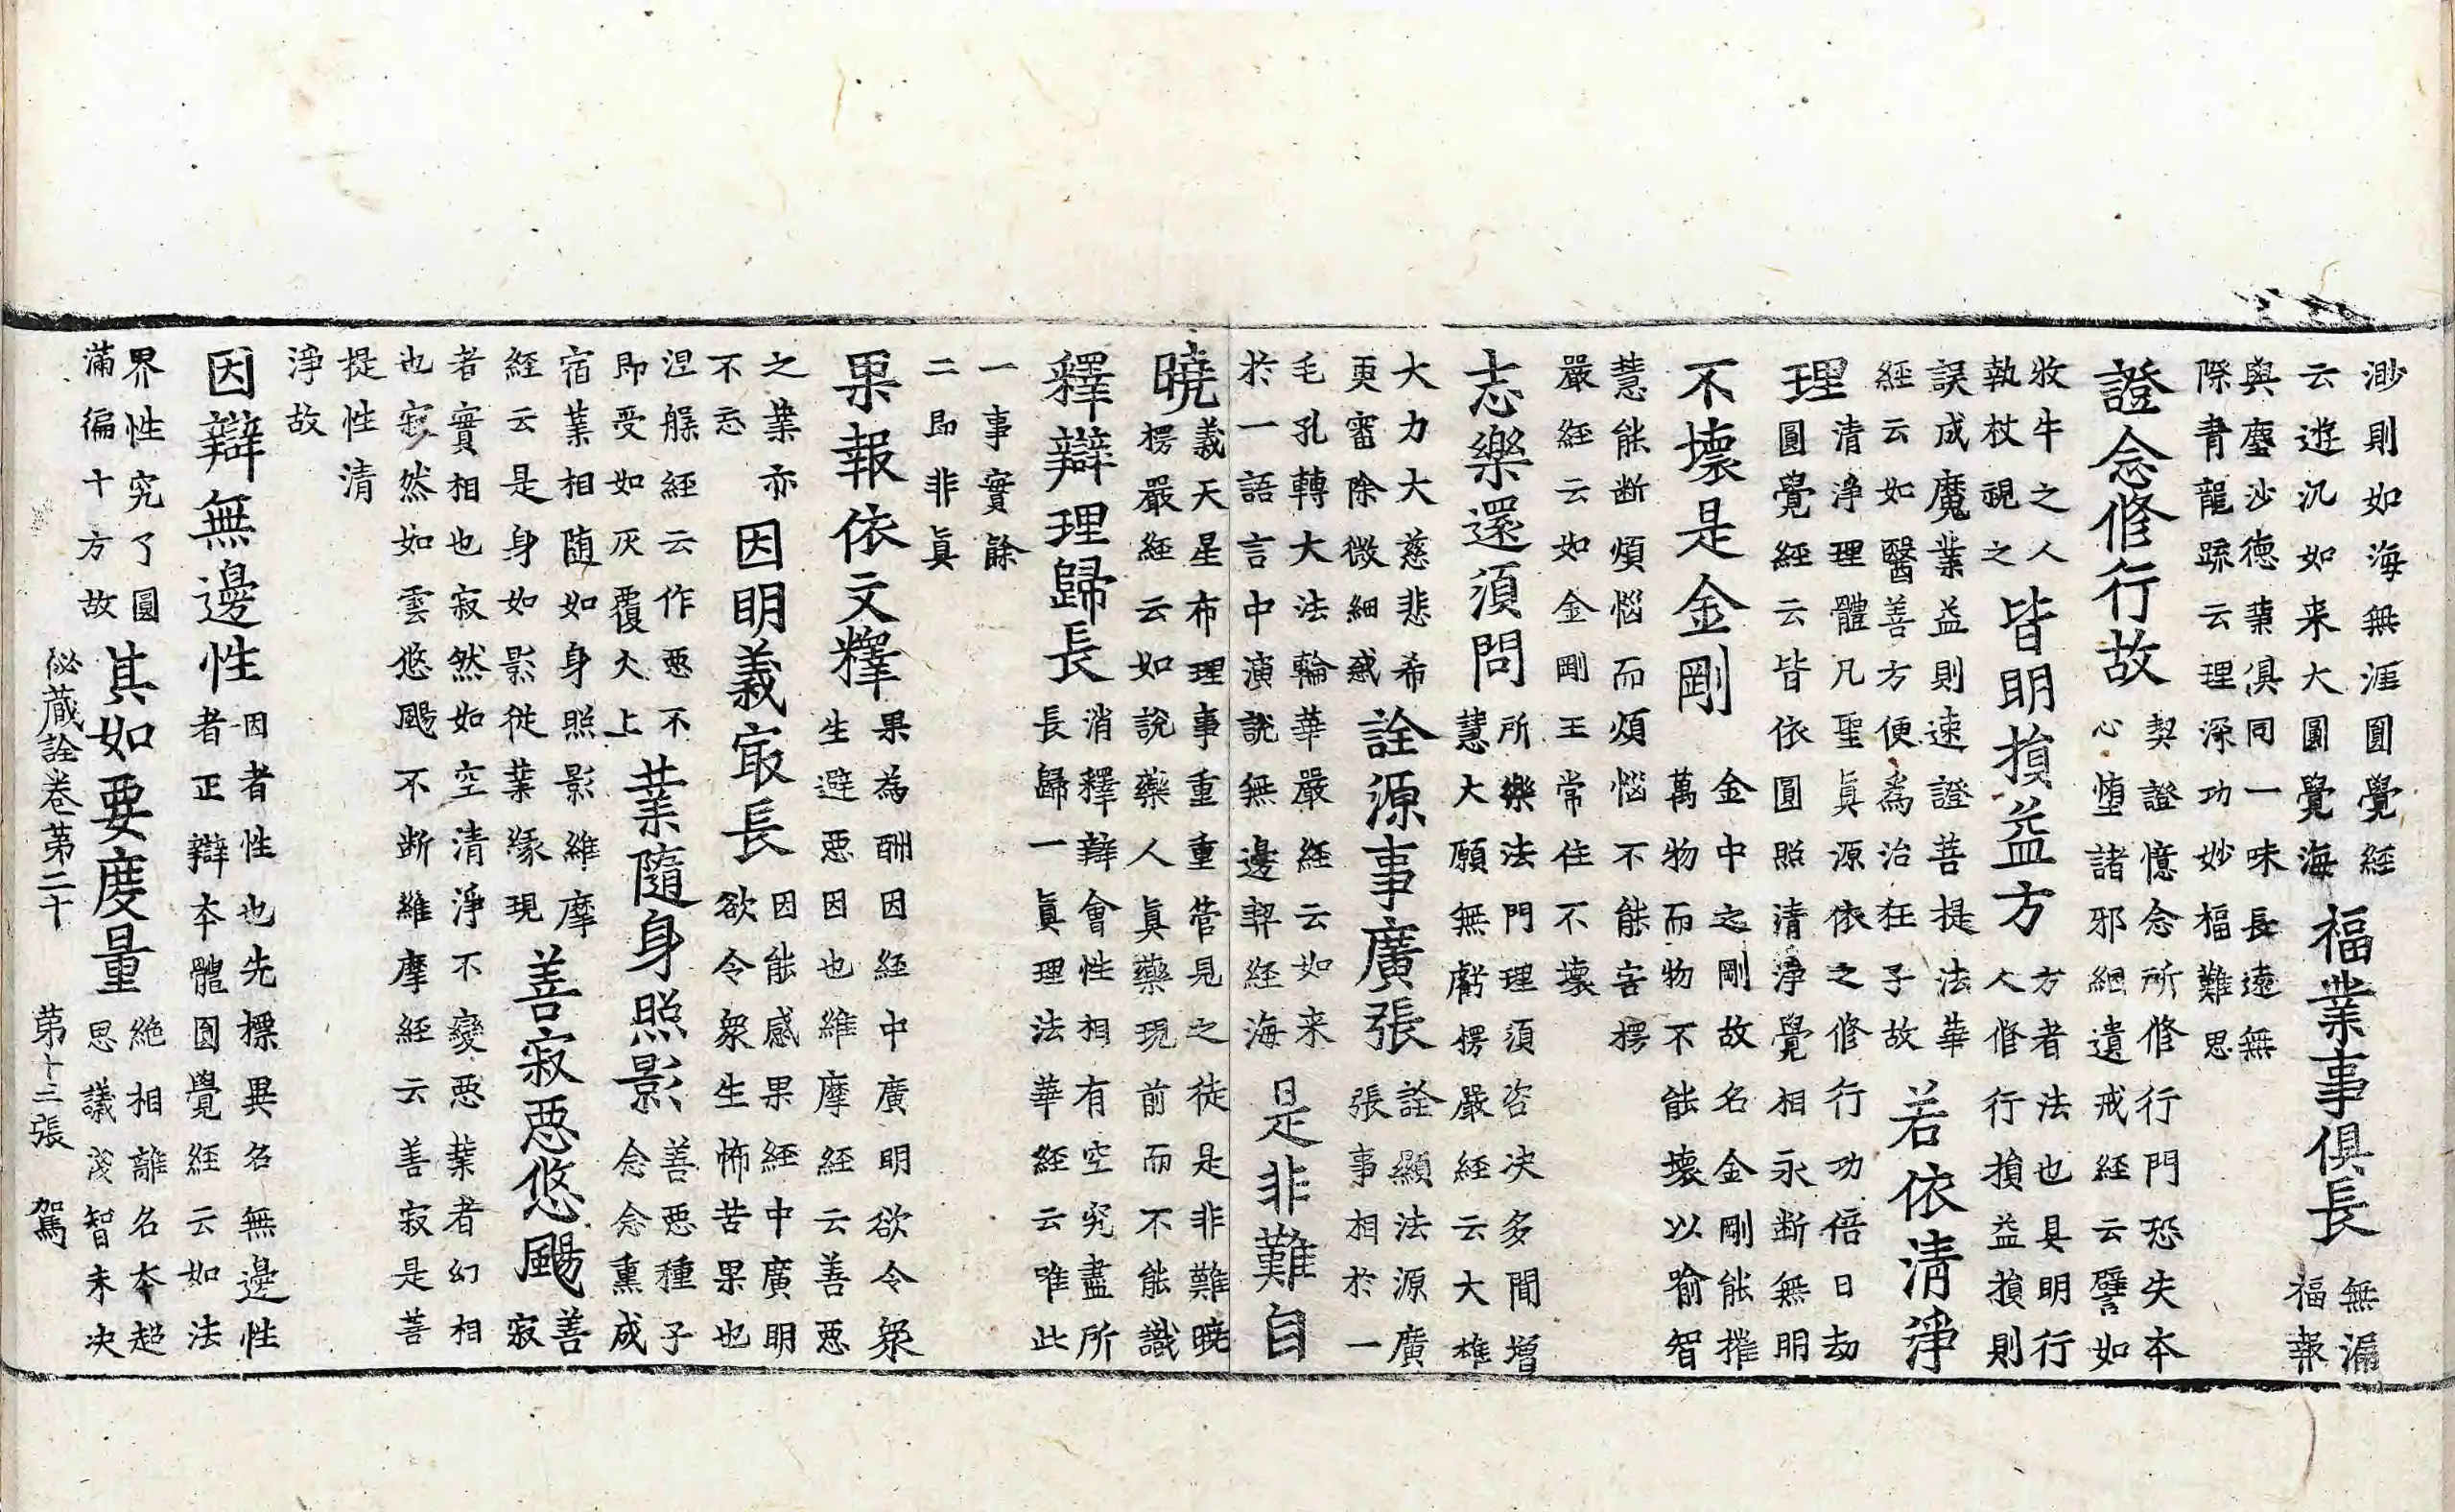 渺則如海無涯圓覺經
云遊汎如来大圓覺海
福業事俱長
無漏
福報
與塵沙德業俱同一味長遠無
際青龍䟽云理深功妙福難思
證念修行故
契證憶念所修行門恐失本
心墮諸邪網遺戒經云譬如
牧牛之人
執杖視之
皆明損益方
方者法也具明行
人修行損益損則
誤成魔業益則速證菩提法華
經云如醫善方便為治狂子故
若依清淨
理
清淨理體凡聖真源依之修行功倍日劫
圓覺經云皆依圓照清淨覺相永断無明
不壞是金剛
金中之剛故名金剛能摧
萬物而物不能壞以喻智
慧能断煩惱而煩惱不能害楞
嚴經云如金剛王常住不壞
志樂還須問
所樂法門理須咨决多聞増
慧大願無虧楞嚴經云大雄
大力大慈悲希
更審除微細惑
詮源事廣張
詮顯法源廣
張事相於一
毛孔轉大法輪華嚴經云如来
於一語言中演說無邊契經海
是非難自
曉
義天星布理事重重管見之徒是非難曉
楞嚴經云如說藥人真藥現前而不能識
釋辯理歸長
消釋辯會性相有空究盡所
長歸一真理法華經云唯此
一事實餘
二即非真
果報依文釋
果為酬因經中廣明欲令衆
生避惡因也維摩經云善惡
之業亦
不忘
因明義㝡長
因能感果經中廣明
欲令衆生怖苦果也
涅槃經云作惡不
即受如灰覆火上
業隨身照影
善惡種子
念念熏成
宿業相随如身照影維摩
經云是身如影從業緣現
善寂惡悠颺
善
寂
者實相也寂然如空清淨不變惡業者幻相
也寂然如雲悠颺不断維摩經云善寂是菩
提性清
淨故
因辯無邊性
因者性也先標異名無邊性
者正辯本體圓覺經云如法
界性究了圓
滿徧十方故
其如要度量
絶相離名本超
思議淺智未决
祕藏詮卷第二十　第十三張　駕